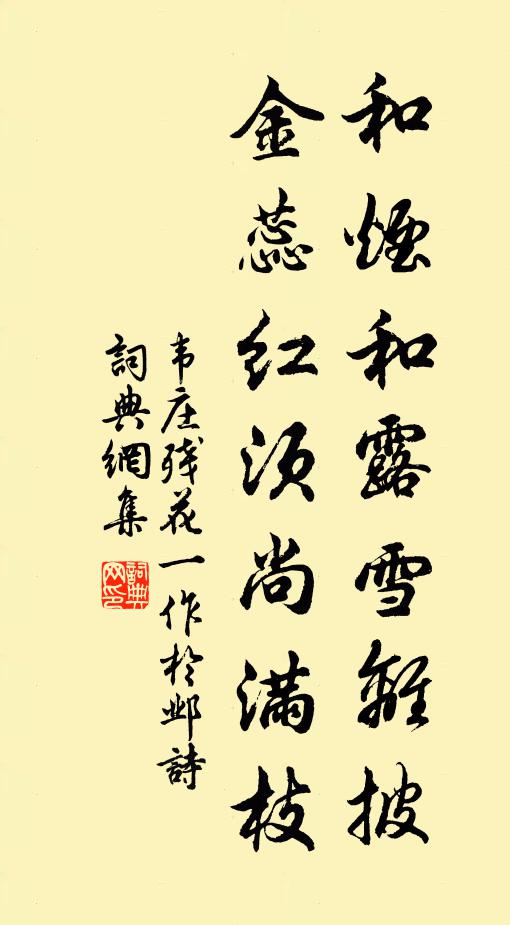 和煙和露雪離披
金蕊红须尚滿枝
韦庄残花一作於邺詩
詞典網集
詞典网印